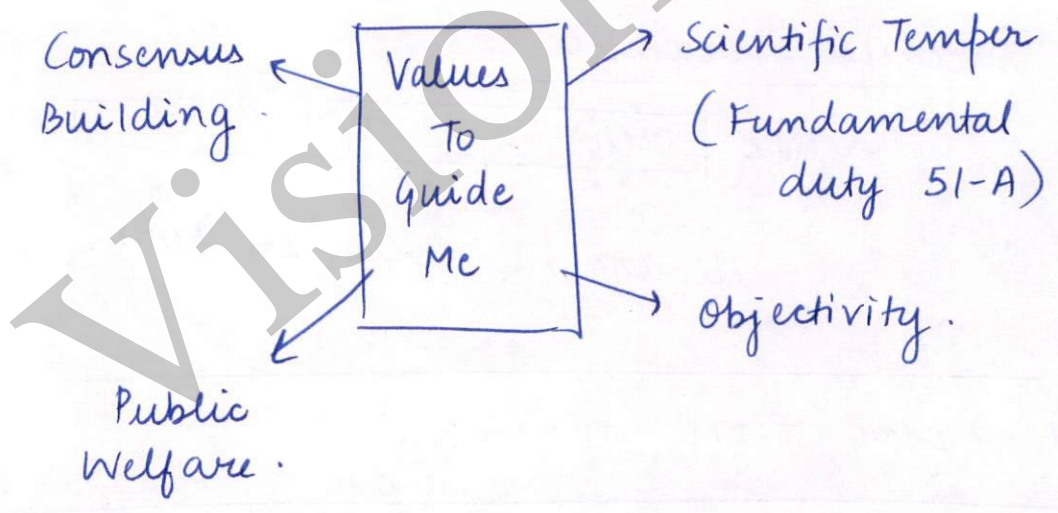 Consensus
Building.
Values
To
Guide
Me
Scientific Temper
(Fundamental
duty 51-A)
Objectivity.
Public
Welfare.
Vision